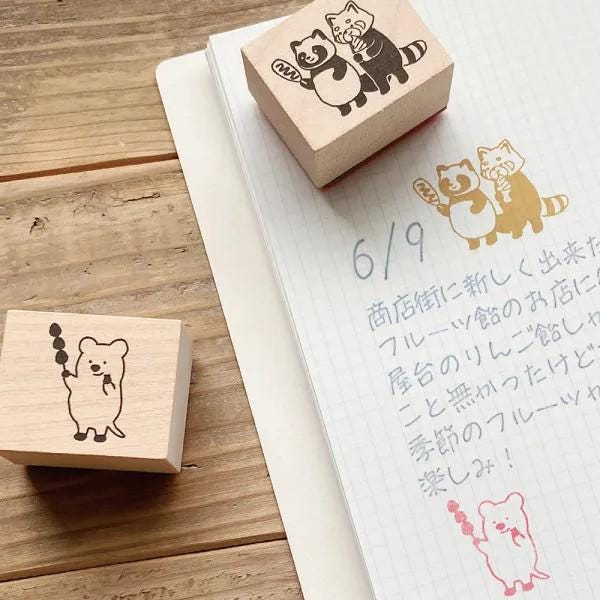 6/9
商店街に新しく出来た
フルーツ飴のお店に
屋台のりんご飴しか
こと無かったけど
季節のフルーツ
楽しみ!